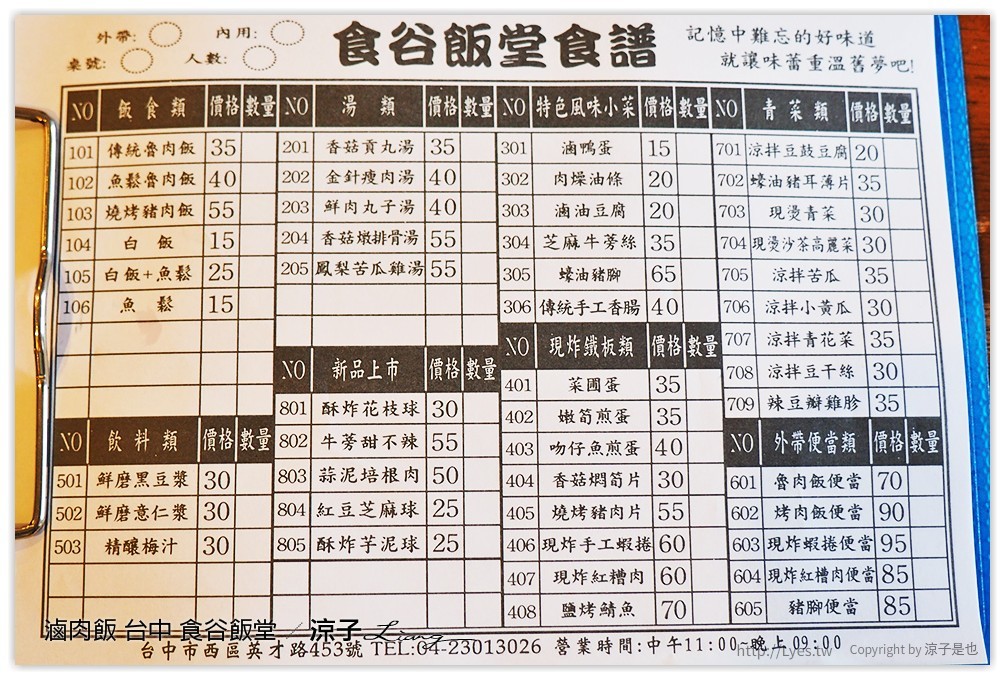 外帶: 內用:
桌號: 人數:
食谷飯堂食譜
記憶中難忘的好味道
就讓味蕾重溫舊夢吧!
NO 飯食類 價格 數量
101 傳統魯肉飯 35
102 魚鬆魯肉飯 40
103 燒烤豬肉飯 55
104 白 飯 15
105 白飯+魚鬆 25
106 魚 鬆 15
NO 飲料類 價格 數量
501 鮮磨黑豆漿 30
502 鮮磨意仁漿 30
503 精釀梅汁 30
NO 湯 類 價格 數量
201 香菇貢丸湯 35
202 金針瘦肉湯 40
203 鮮肉丸子湯 40
204 香菇燉排骨湯 55
205 鳳梨苦瓜雞湯 55
NO 新品上市 價格 數量
801 酥炸花枝球 30
802 牛蒡甜不辣 55
803 蒜泥培根肉 50
804 紅豆芝麻球 25
805 酥炸芋泥球 25
NO 特色風味小菜 價格 數量
301 滷鴨蛋 15
302 肉燥油條 20
303 滷油豆腐 20
304 芝麻牛蒡絲 35
305 蠔油豬腳 65
306 傳統手工香腸 40
NO 現炸鐵板類 價格 數量
401 菜圃蛋 35
402 嫩筍煎蛋 35
403 吻仔魚煎蛋 40
404 香菇燜筍片 30
405 燒烤豬肉片 55
406 現炸手工蝦捲 60
407 現炸紅糟肉 60
408 鹽烤鯖魚 70
NO 青菜類 價格 數量
701 涼拌豆鼓豆腐 20
702 蠔油豬耳薄片 35
703 現燙青菜 30
704 現燙沙茶高麗菜 30
705 涼拌苦瓜 35
706 涼拌小黃瓜 30
707 涼拌青花菜 35
708 涼拌豆干絲 30
709 辣豆瓣雞胗 35
NO 外帶便當類 價格 數量
601 魯肉飯便當 70
602 烤肉飯便當 90
603 現炸蝦捲便當 95
604 現炸紅糟肉便當 85
605 豬腳便當 85
滷肉飯 台中 食谷飯堂 / 涼子 Liang
台中市西區英才路453號 TEL:04-23013026 營業時間:中午11:00-晚上09:00
http://Lyes.tw Copyright by 涼子是也